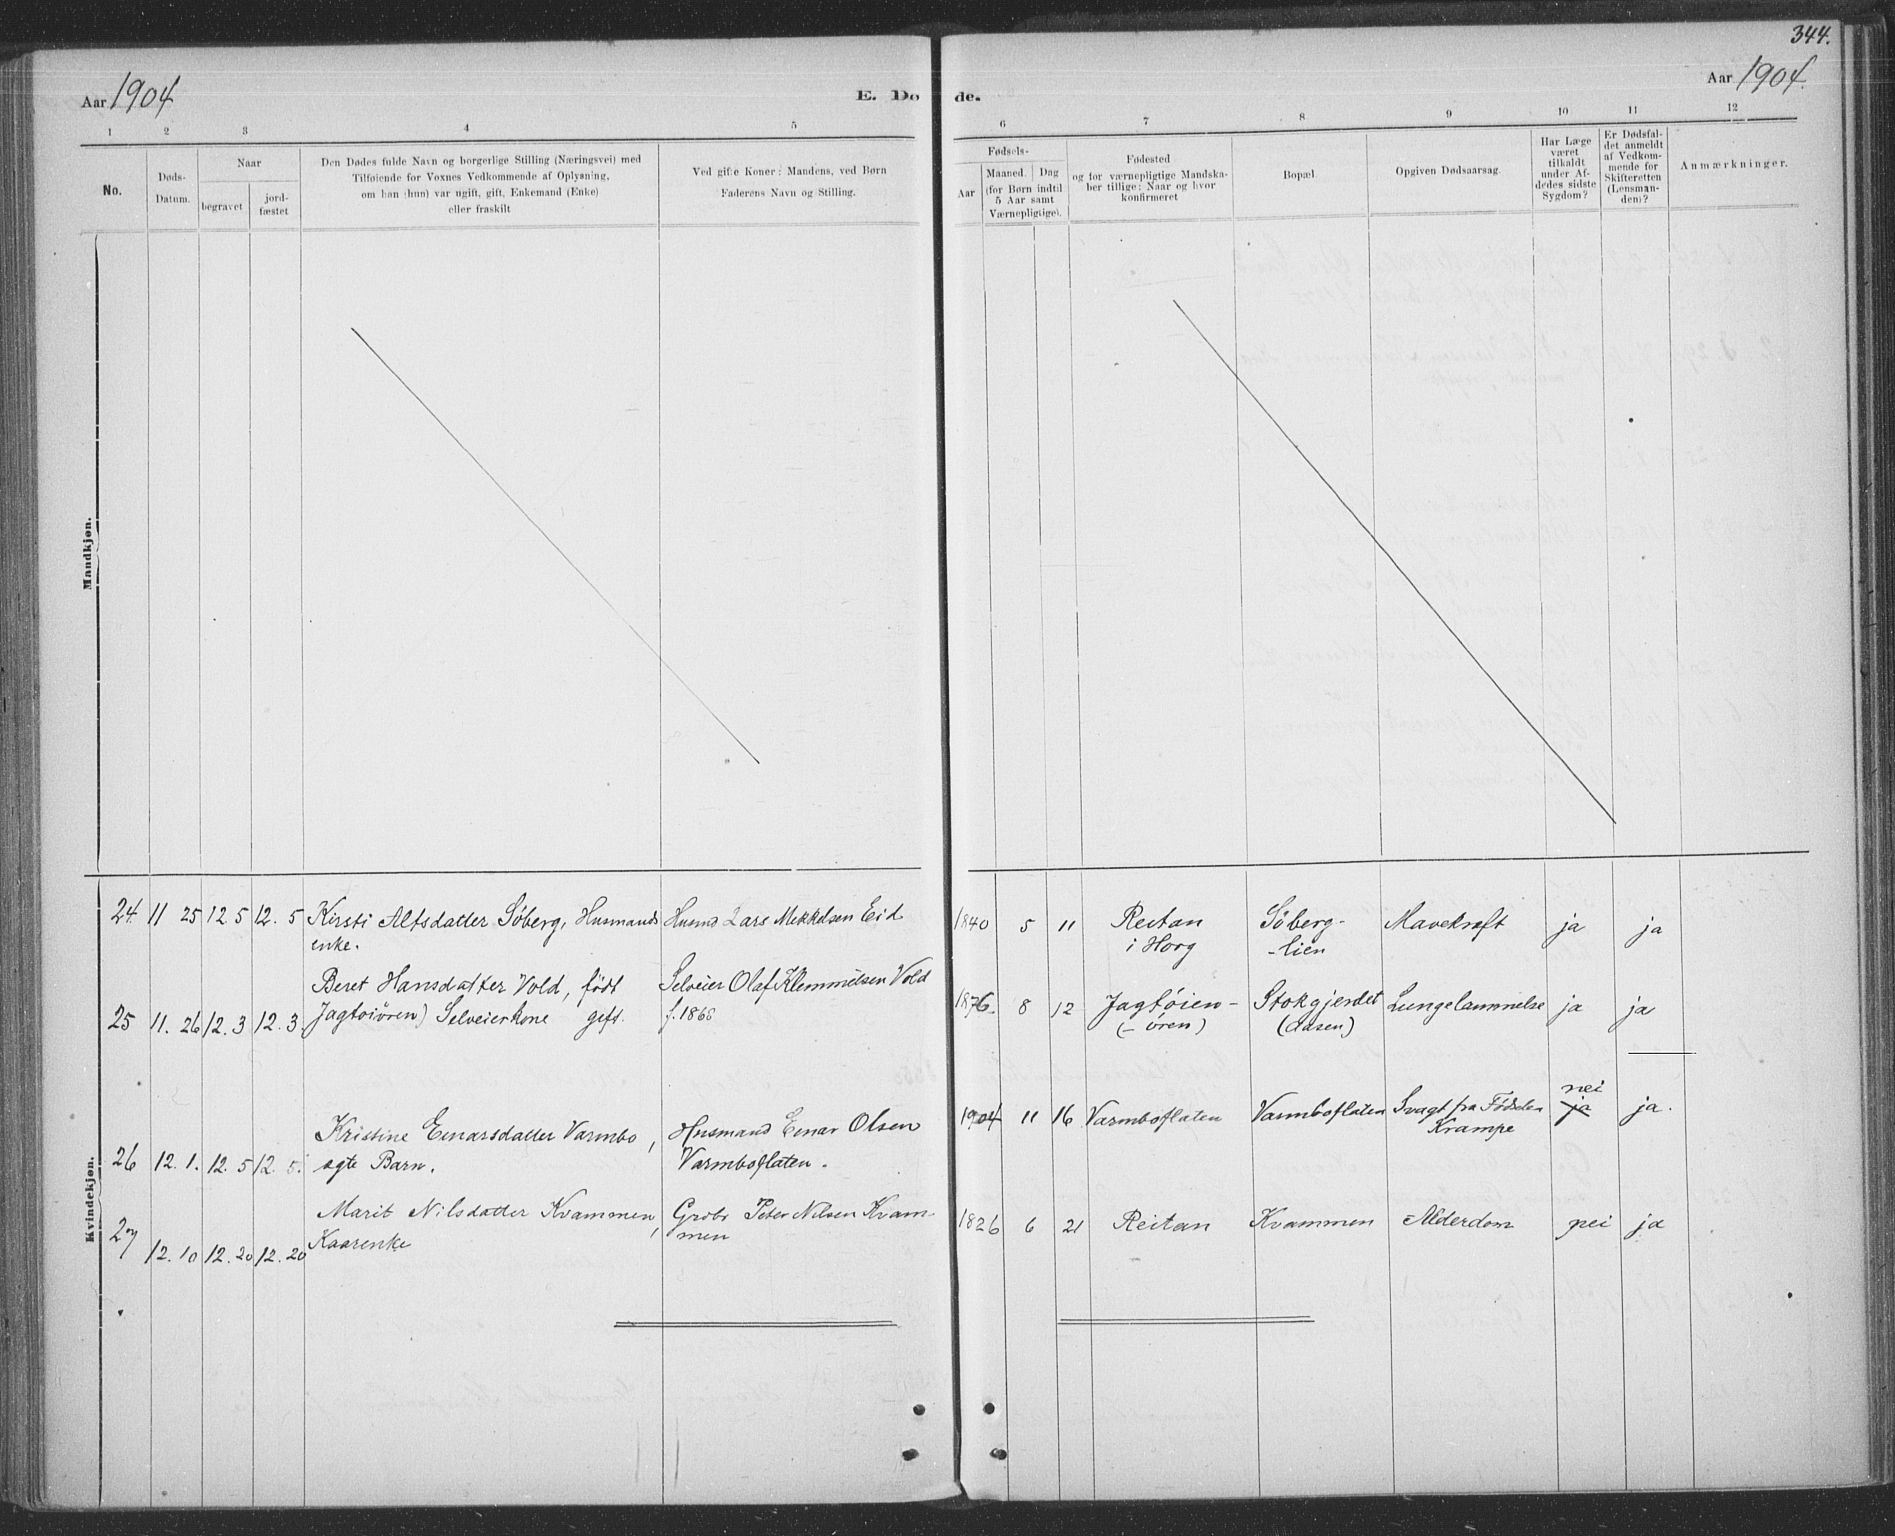 344.
Aar 1904
E. Dø de.
Aar 1904.
1 2 3 4 5 6 7 8 9 10 11 12
No.
Døds-
Datum.
Naar
begravet
jord-
fæstet
Den Dødes fulde Navn og borgerlige Stilling (Næringsvei) med
Tilføiende for Voxnes Vedkommende af Oplysning,
om han (hun) var ugift, gift, Enkemand (Enke)
eller fraskilt
Ved gifte Koner: Mandens, ved Børn
Faderens Navn og Stilling.
Fødsels-
Aar
Maaned. Dag
(for Børn indtil
5 Aar samt
Værnepligtige).
Fødested
og for værnepligtige Mandska-
ber tillige: Naar og hvor
konfirmeret
Bopæl.
Opgiven Dødsaarsag.
Har Læge
været
tilkaldt
under Af-
dødes sidste
Sygdom?
Er Dødsfal-
det anmeldt
af Vedkom-
mende for
Skifteretten
(Lensman-
den)?
Anmærkninger.
Mandkjøn.
Kvindekjøn.
24 11 25 12 5 12. 5 Kirsti Altsdatter Söberg, Husmands Husmd Lars Mikkelsen Eid 1840 5 11 Reitan Söberg- Mavekræft ja ja
enke. i Horg -lien
Beret Hansdatter Vold, født Selveier Olaf Klemmetsen Vold
25 11. 26 12. 3 12. 3 Jagtöiören) Selveierkone gift. f. 1868 1876. 8 12 Jagtöien- Stokgjerdet Lungelammelse ja ja
(- ören) (Aasen)
nei
Kristine Einarsdatter Varmbo, Husmand Einar Olsen 1904 11 16 Varmboflaten Varmboflaten Svagt fra Fødselen ja ja.
26 12. 1. 12. 5 12. 5. ægte Barn. Varmboflaten. Krampe
Marit Nilsdatter Kvammen, Grdbr Peter Nilsen Kvam- 1826 6 21 Reitan Kvammen Alderdom nei ja
27 12. 10 12. 20 12. 20 Kaarenke men